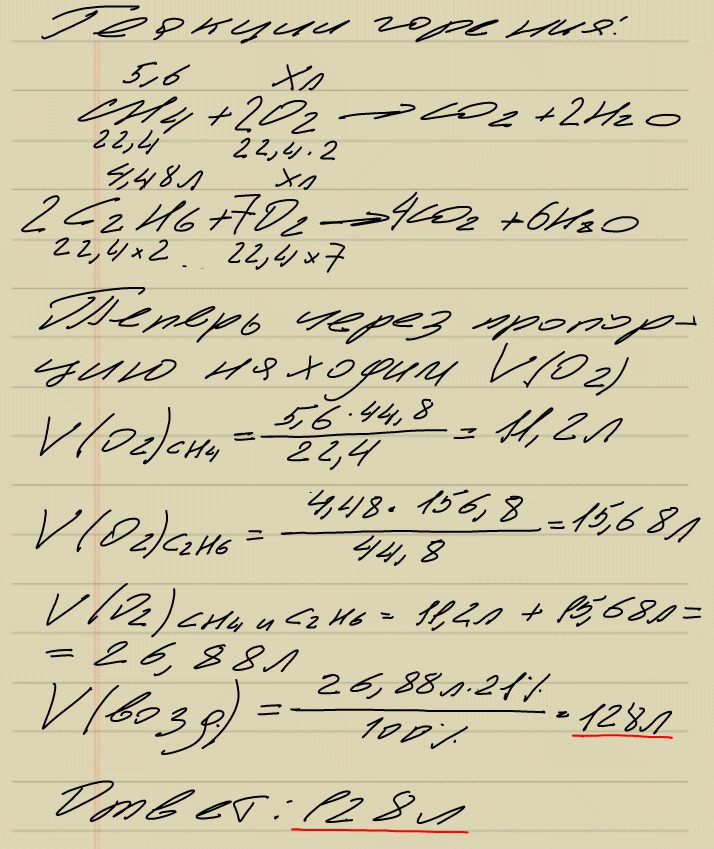 Реакции горения:
5,6 хл
CH4 + 2O2 → CO2 + 2H2O
22,4 22,4·2
4,48л хл
2C2H6 + 7O2 → 4CO2 + 6H2O
22,4×2 22,4×7
Теперь через пропор-
цию находим V(O2)
V(O2)CH4 = 5,6·44,8 / 22,4 = 11,2л
V(O2)C2H6 = 4,48·156,8 / 44,8 = 15,68л
V(O2)CH4 и C2H6 = 11,2л + 15,68л =
= 26,88л
V(возд) = 26,88л·21% / 100% = 128л
Ответ: 128л